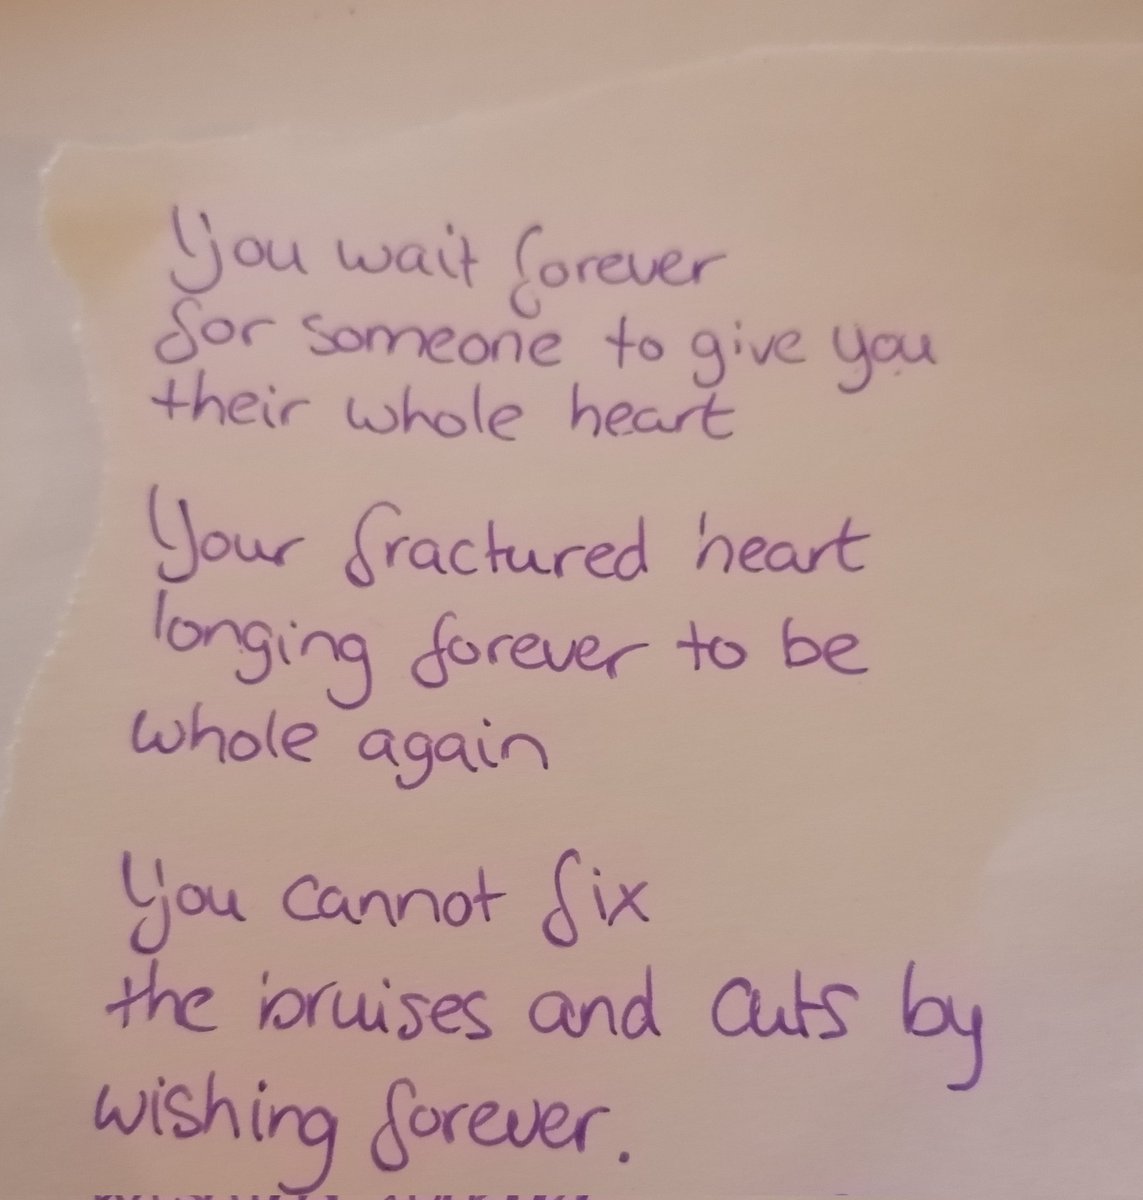 You wait forever
for someone to give you
their whole heart
Your fractured heart
longing forever to be
whole again
You cannot fix
the bruises and cuts by
wishing forever.